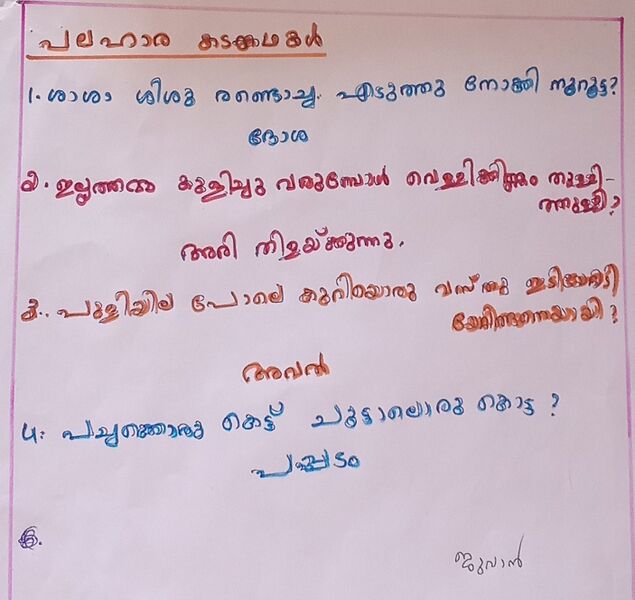 പലഹാര കടങ്കഥകൾ
1. ശാശാ ശീശു രണ്ടൊച്ച. എടുത്തു നോക്കി നൂറൂട്ട?
ദോശ
2. ഇല്ലത്തമ്മ കുളിച്ചു വരുമ്പോൾ വെള്ളിക്കിണ്ണം തുള്ളി-
ത്തുള്ളി?
അരി തിളയ്ക്കുന്നു.
3. പുളിയില പോലെ കുറിയൊരു വസ്തു
അവൽ
4: പച്ചയ്ക്കൊരു കെട്ട് ചുട്ടാലൊരു കൊട്ട?
പപ്പടം
ജുവാൻ